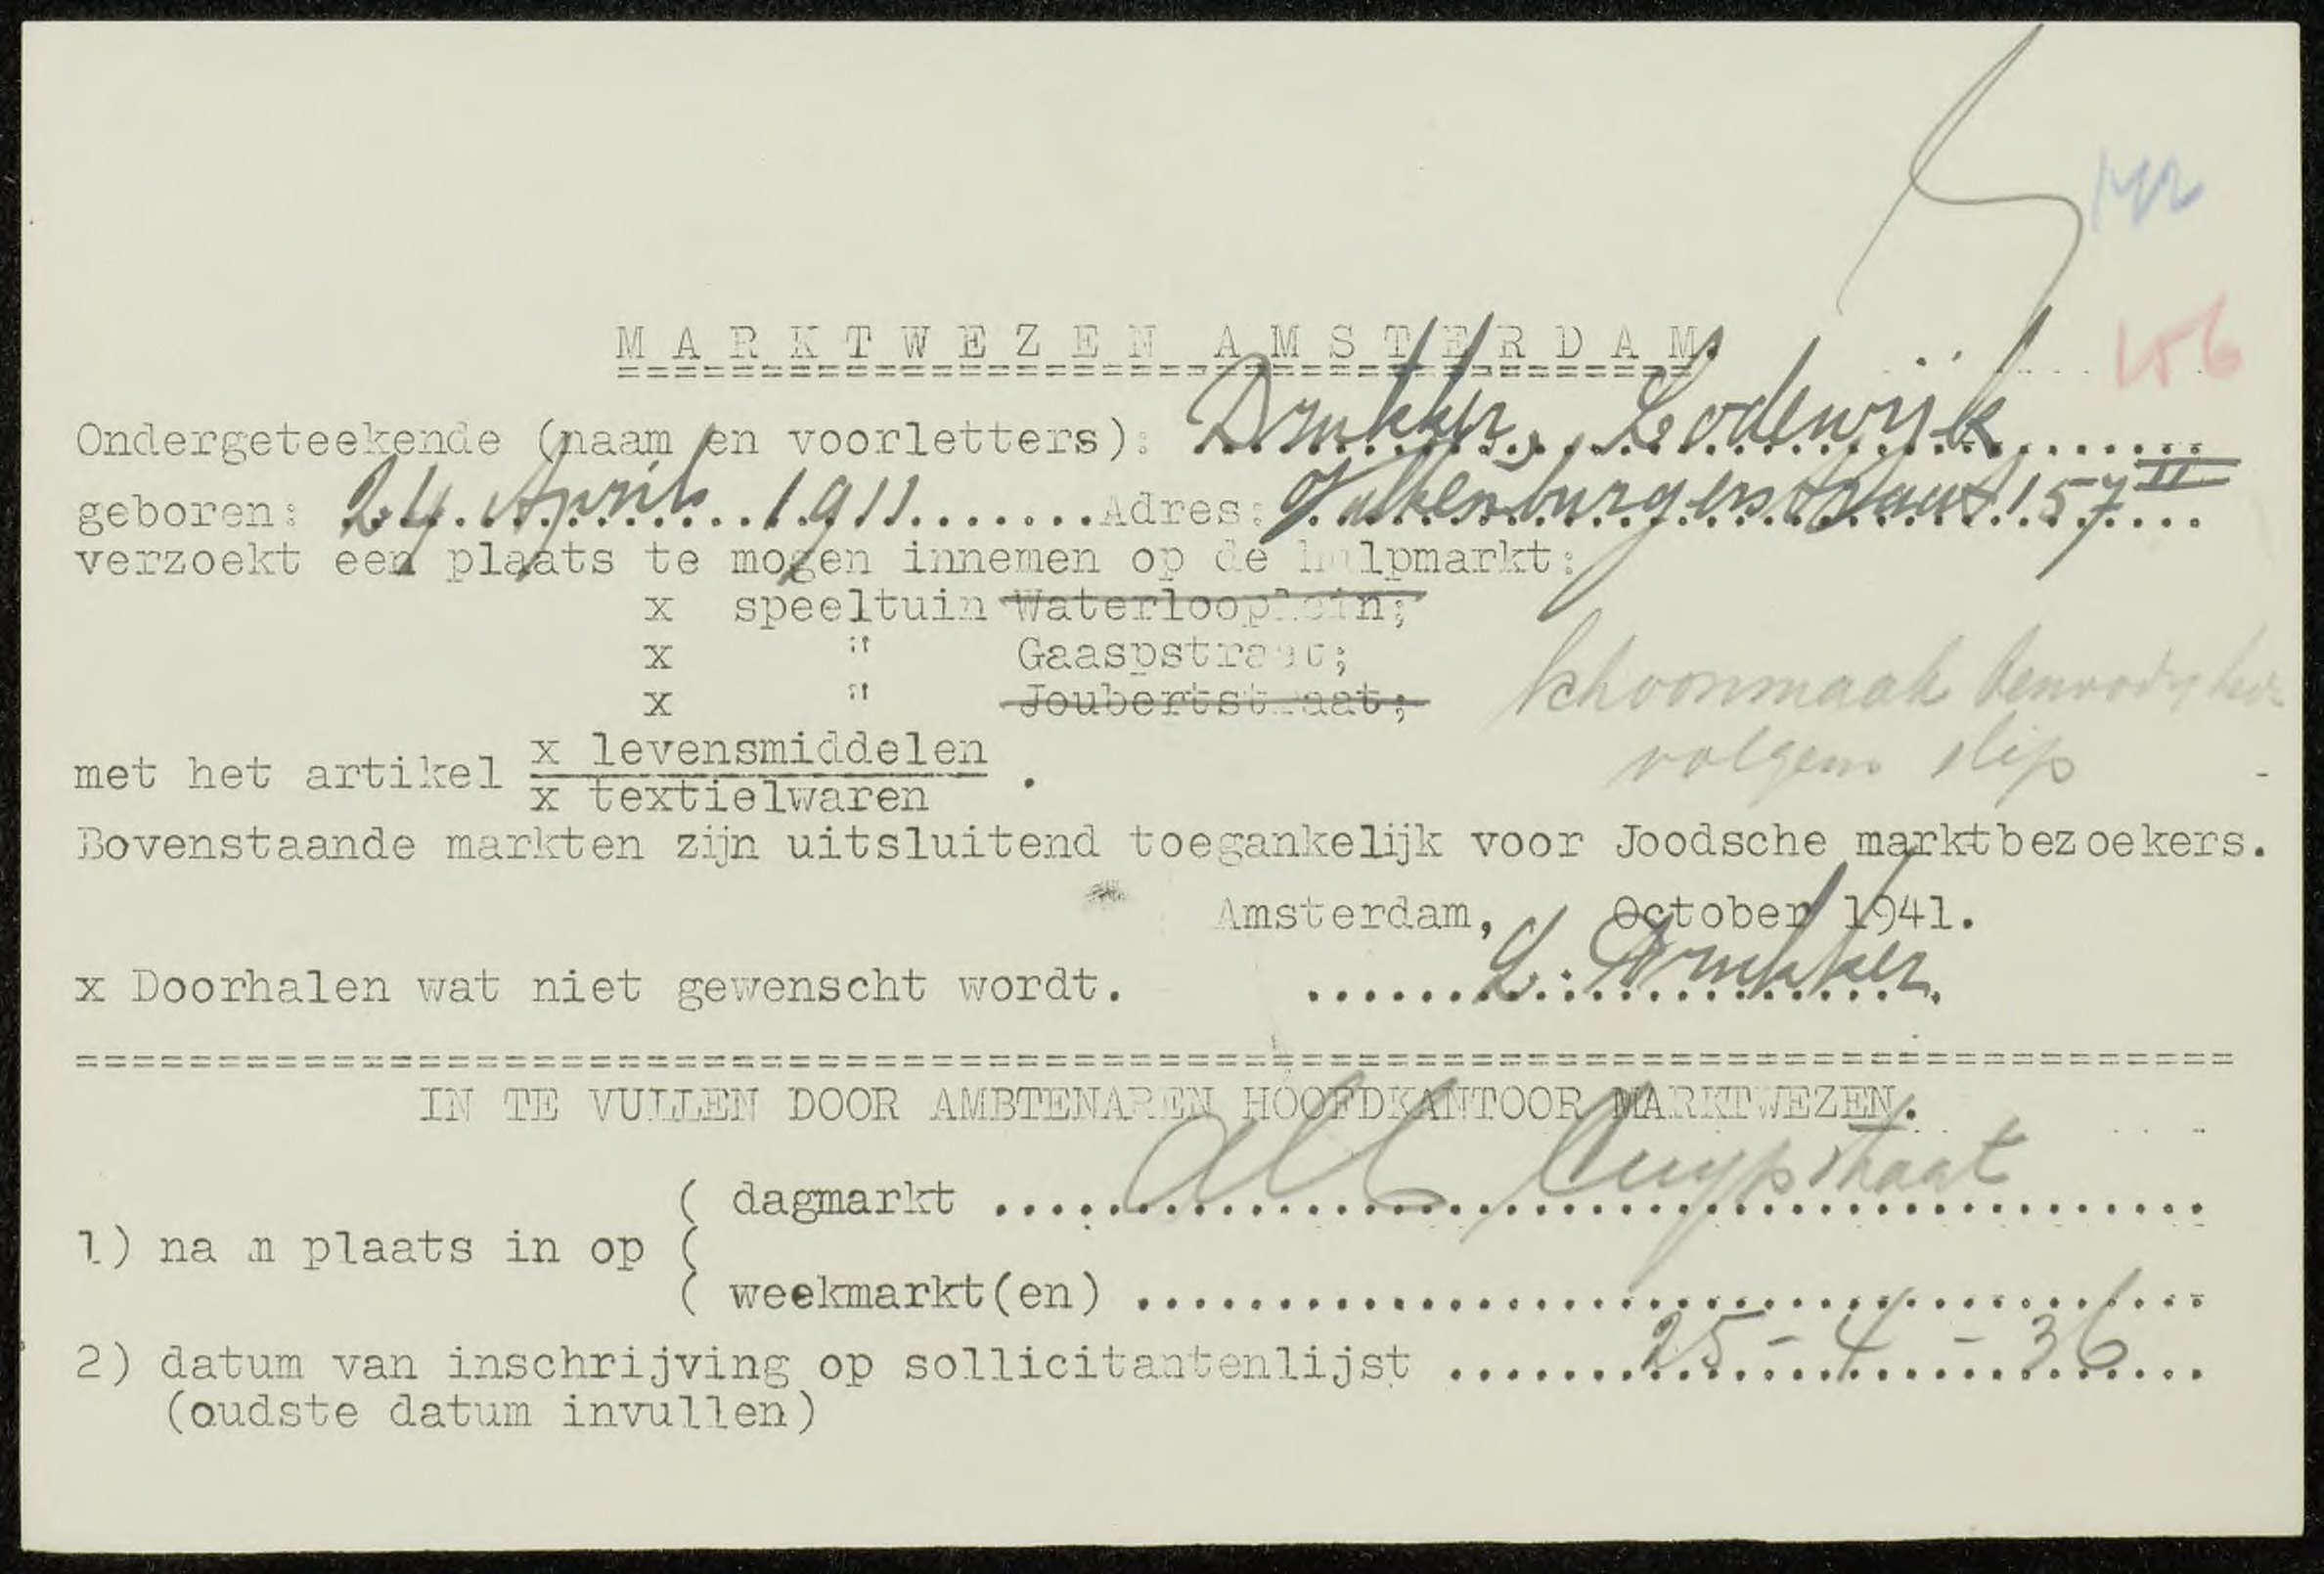 142
156
MARKTWEZEN AMSTERDAM.
Ondergeteekende (naam en voorletters): Drukker, Lodewijk
geboren: 24 April 1911 Adres: Valkenburgerstraat 157 II
verzoekt een plaats te mogen innemen op de hulpmarkt:
x speeltuin Waterlooplein;
x " Gaaspstraat;
x " Joubertstraat;
schoonmaak
volgens slip
met het artikel x levensmiddelen
x textielwaren .
Bovenstaande markten zijn uitsluitend toegankelijk voor Joodsche marktbezoekers.
Amsterdam, October 1941.
x Doorhalen wat niet gewenscht wordt. L. Drukker.
IN TE VULLEN DOOR AMBTENAREN HOOFDKANTOOR MARKTWEZEN.
( dagmarkt Alb Cuypstraat
1) nam plaats in op (
( weekmarkt(en)
2) datum van inschrijving op sollicitantenlijst 25-4-36
(oudste datum invullen)